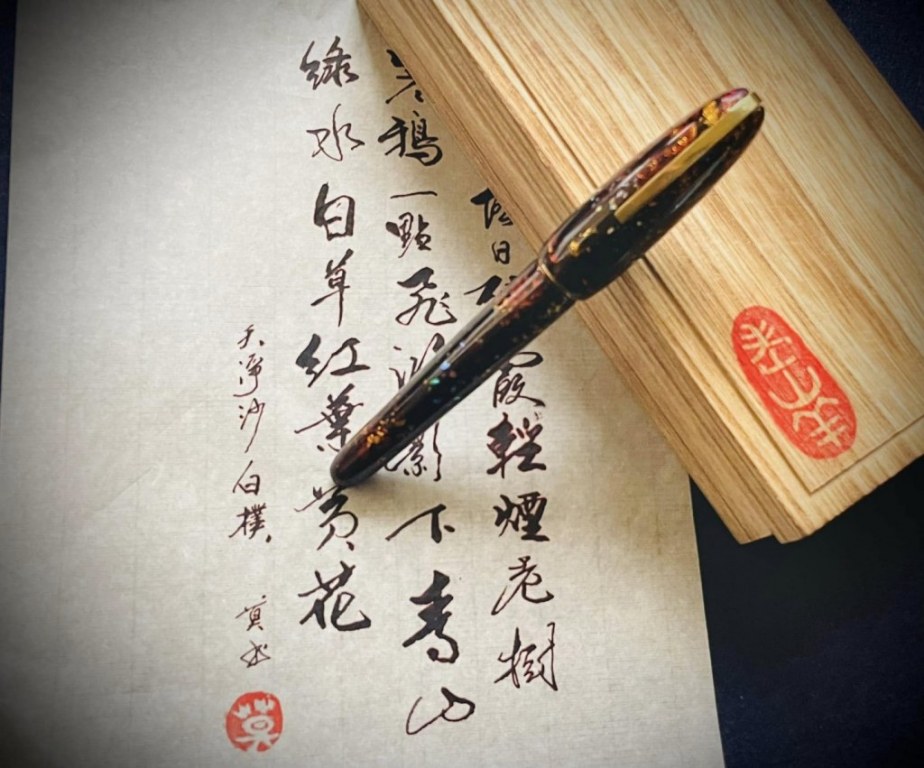 日 霞輕煙老樹
鴉一點飛鴻影下青山
綠水白草紅葉黃花
天淨沙 白樸